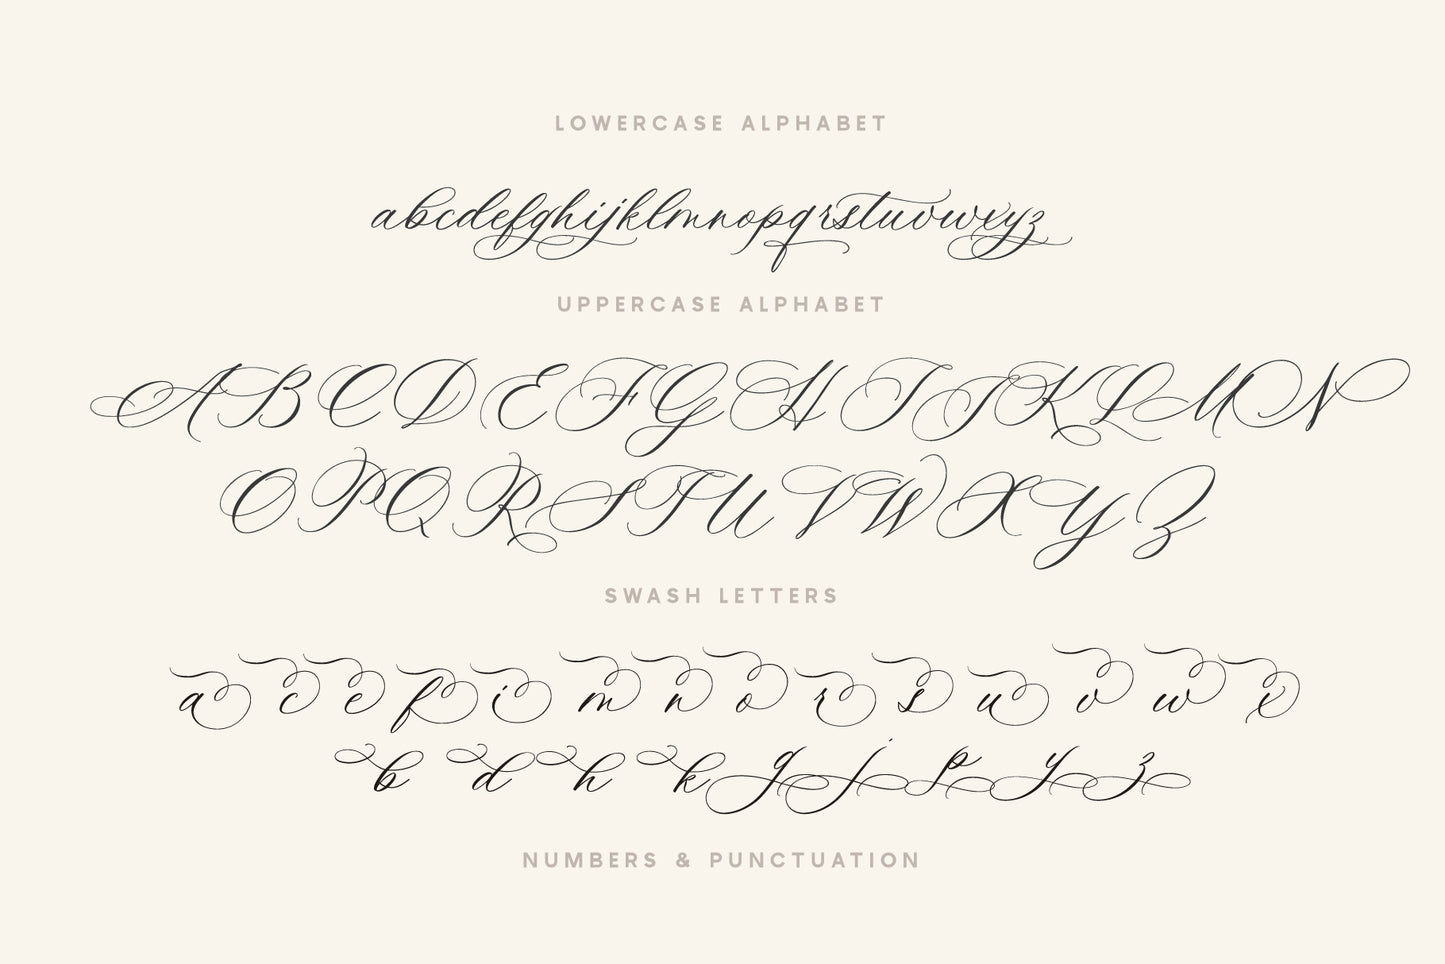 LOWERCASE ALPHABET
abcdefghijklmnopqrstuvwxyz
UPPERCASE ALPHABET
ABCDEFGHIJKLMN
OPQRSTUVWXYZ
SWASH LETTERS
a c e f i m n o r s u v w x
b d h k g j p y z
NUMBERS & PUNCTUATION